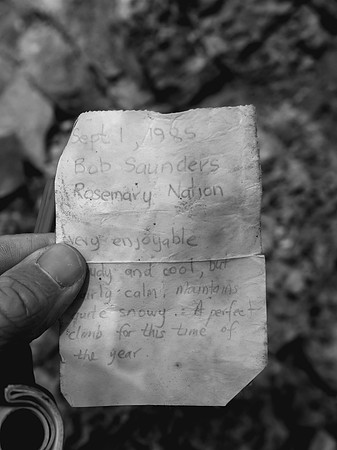 Sept 1, 1985
Bob Saunders
Rosemary Nation
Very enjoyable
and cool, but
calm, mountains
quite snowy ∴ A perfect
climb for this time of
the year.